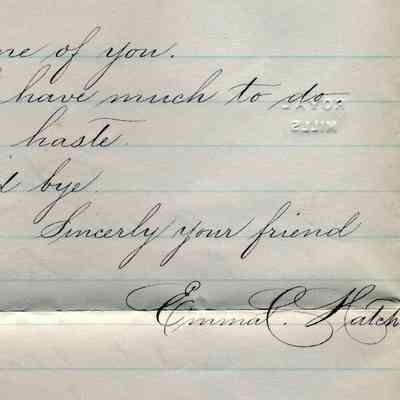 me of you.
have much to do
haste.
d bye.
Sincerly your friend
Emma C. Hatch